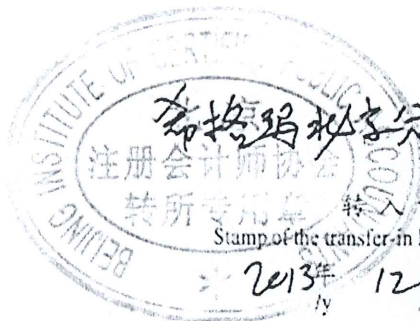 BEIJING INSTITUTE OF CERTIFIED PUBLIC ACCOUNTANTS
希格玛北京分
注册会计师协会
转所专用章
转 入
Stamp of the transfer-in I
2013年 12
/y